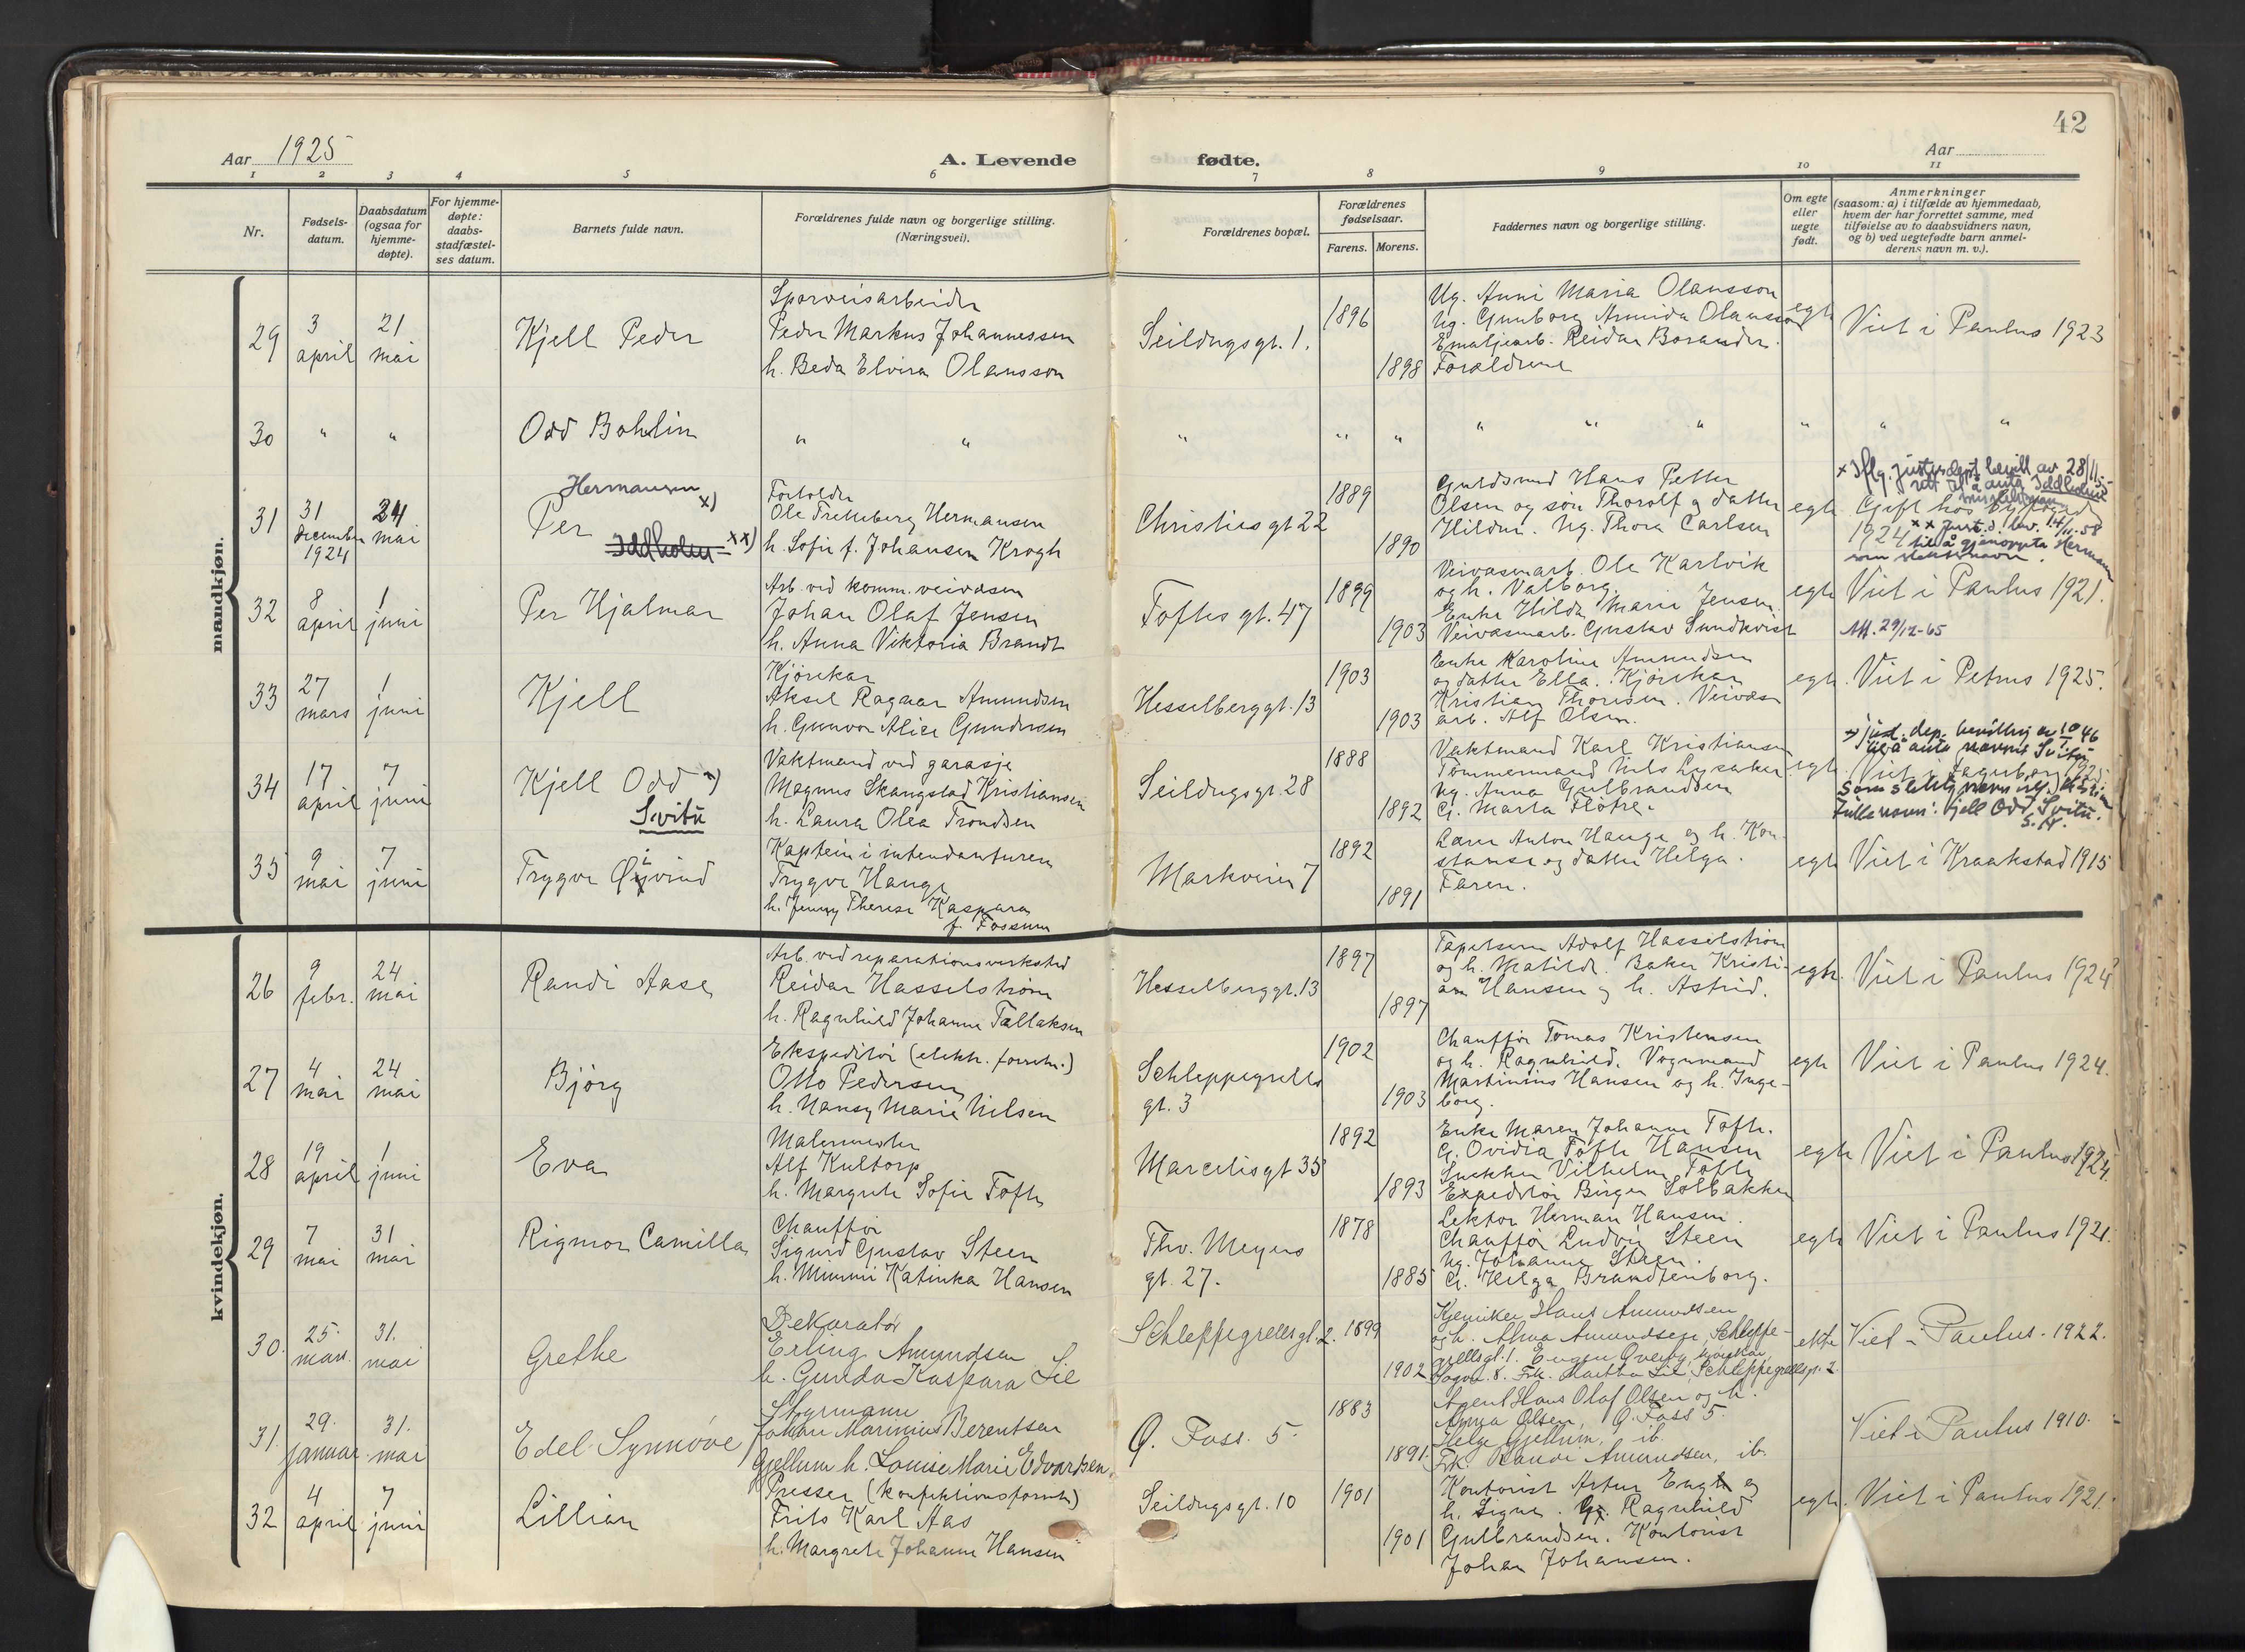 42
Aar 1925
A. Levende
fødte.
Aar
1 2 3 4 5 6 7 8 9 10 11
Nr.
Fødsels-
datum.
Daabsdatum
(ogsaa for
hjemme-
døpte).
For hjemme-
døpte:
daabs-
stadfæstel-
ses datum.
Barnets fulde navn.
Forældrenes fulde navn og borgerlige stilling.
(Næringsvei).
Forældrenes bopæl.
Forældrenes
fødselsaar.
Farens. Morens.
Faddernes navn og borgerlige stilling.
Om egte
eller
uegte
født.
Anmerkninger
(saasom: a) i tilfælde av hjemmedaab,
hvem der har forrettet samme, med
tilføielse av to daabsvidners navn,
og b) ved uegtefødte barn anmel-
derens navn m. v.).
mandkjøn.
29
3
april
21
mai
Kjell Peder
Sporveisarbeider
Peder Markus Johannessen
h. Beda Elvira Olausson
Seildugsgt. 1.
1896
1898
Ug. Anni Maria Olausson
Ug. Gunborg Armida Olausson
Emaljearb. Reidar Borander.
Forældrene
egte
Viet i Paulus 1923
30
"
"
Odd Bohlin
" "
"
" "
" " "
"
" "
31
31
december
1924
24
mai
Hermansen x)
Per
Iddholen xx)
Forvalter
Ole Tretteberg Hermansen
h. Sofie f. Johansen Krogh
Christies gt 22
1889
1890
Guldsmed Hans Petter
Olsen og søn Thorolf og datter
Hildur. Ug. Thora Carlsen
egte
x Iflg. justisdept. bevill av 28/11-
rett til å anta Iddholen
Gift hos byfogden
1924
x x just. d. bev. 14/11-58
til å gjenoppta Herman
som slektsnavn.
32
8
april
1
juni
Per Hjalmar
Arb. ved komm. veivæsen
Johan Olaf Jensen
h. Anna Viktoria Brandt
Toftes gt. 47
1899
1903
Veivæsenarb. Ole Karlvik
og h. Valborg.
Enke Hilda Marie Jensen.
Veivæsenarb. Gustav Sundkvist
egte
Viet i Paulus 1921.
Att. 29/12-65
33
27
mars
1
juni
Kjell
Kjørekar
Aksel Ragnar Amundsen
h. Gunvor Alice Gundersen
Hesselberggt. 13
1903
1903
Enke Karoline Amundsen
og datter Ella. Kjørekar
Kristian Thoresen. Veivæsen
arb. Alf Olsen.
egte
Viet i Petrus 1925.
34
17
april
7
juni
Kjell Odd x)
Svitu
Vaktmand ved garasje
Magnus Skangstad Kristiansen
h. Laura Olea Trondsen
Seildugsgt. 28
1888
1892
Vaktmand Karl Kristiansen
Tømmermand Nils Lysaker
Ug. Anna Gulbrandsen
G. Marta Fløtre.
egte
x) just. dep. bevilling av 46
til å anta navnet Svitu
som slektsnavn
Fulle navn: Kjell Odd Svitu.
S. N.
35
9
mai
7
juni
Trygve Øivind
Kaptein i intendanturen
Trygve Hauge
h. Jenny Therese Kaspara
f. Fossum
Markveien 7
1892
1891
Lærer Anton Hauge og h. Kon-
stanse og datter Helga.
Faren.
egte
Viet i Kraakstad 1915
kvindekjøn.
26
9
febr.
24
mai
Randi Aase
Arb. ved reparationsverksted
Reidar Hasselstrøm
h. Ragnhild Johanne Tallaksen
Hesselberggt. 13
1897
1897
Tapetserer Adolf Hasselstrøm
og h. Matilde. Baker Kristi-
an Hansen og h. Astrid.
egte.
Viet i Paulus 1924
27
4
mai
24
mai
Bjørg
Ekspeditør (elektr. forretn.)
Otto Pedersen
h. Nansy Marie Nilsen
Schleppegrells
gt. 3
1902
1903
Chauffør Tomas Kristensen
og h. Ragnhild. Vognmand
Martinius Hansen og h. Inge-
borg.
egte
Viet i Paulus 1924.
28
19
april
1
juni
Eva
Malermester
Alf Kultorp
h. Margrete Sofie Tofte
Marcelisgt 35
1892
1893
Enke Maren Johanne Tofte.
G. Ovidia Tofte Hansen
Snekker Vilhelm Tofte
Expeditør Birger Solbakken
egte
Viet i Paulus 1924.
29
7
mai
31
mai
Rigmor Camilla
Chauffør
Sigurd Gustav Steen
h. Mimmi Katinka Hansen
Thv. Meyers
gt. 27.
1878
1885
Lektor Herman Hansen.
Chauffør Ludvig Steen
Ug. Johanne Steen.
G. Helga Brandtenborg.
egte
Viet i Paulus 1921.
30.
25.
mars.
31.
mai
Grethe
Dekoratør
Erling Amundsen
h. Gunda Kaspara Lie
Schleppegrellsgt. 2.
1899
1902
Kjemiker Hans Amundsen
og h. Alma Amundsen, Schleppe-
grellsgt. 1. Eugen Øverby,
Frk. Martha Lie, Schleppegrellsgt. 2.
ekte
Viet i Paulus. 1922.
31.
29.
januar.
31.
mai
Edel Synnøve
Styrmann
Johan Marinius Berentsen
Gjellum h. Louise Marie Edvardsen.
Ø. Foss. 5.
1883
1891.
Agent Hans Olaf Olsen og h.
Anna Olsen, Ø. Foss 5.
Helge Gjellum, ib.
Frk. Randi Amundsen, ib.
Viet i Paulus 1910.
32
4
april
7
juni
Lillian
Presser (konfektionsforretn.)
Frits Karl Aas
h. Margrete Johanne Hansen
Seildugsgt. 10
1901
1901
Kontorist Artur Engh og
h. Signe. Ragnhild
Gulbrandsen. Kontorist
Johan Johansen.
egte.
Viet i Paulus 1921.